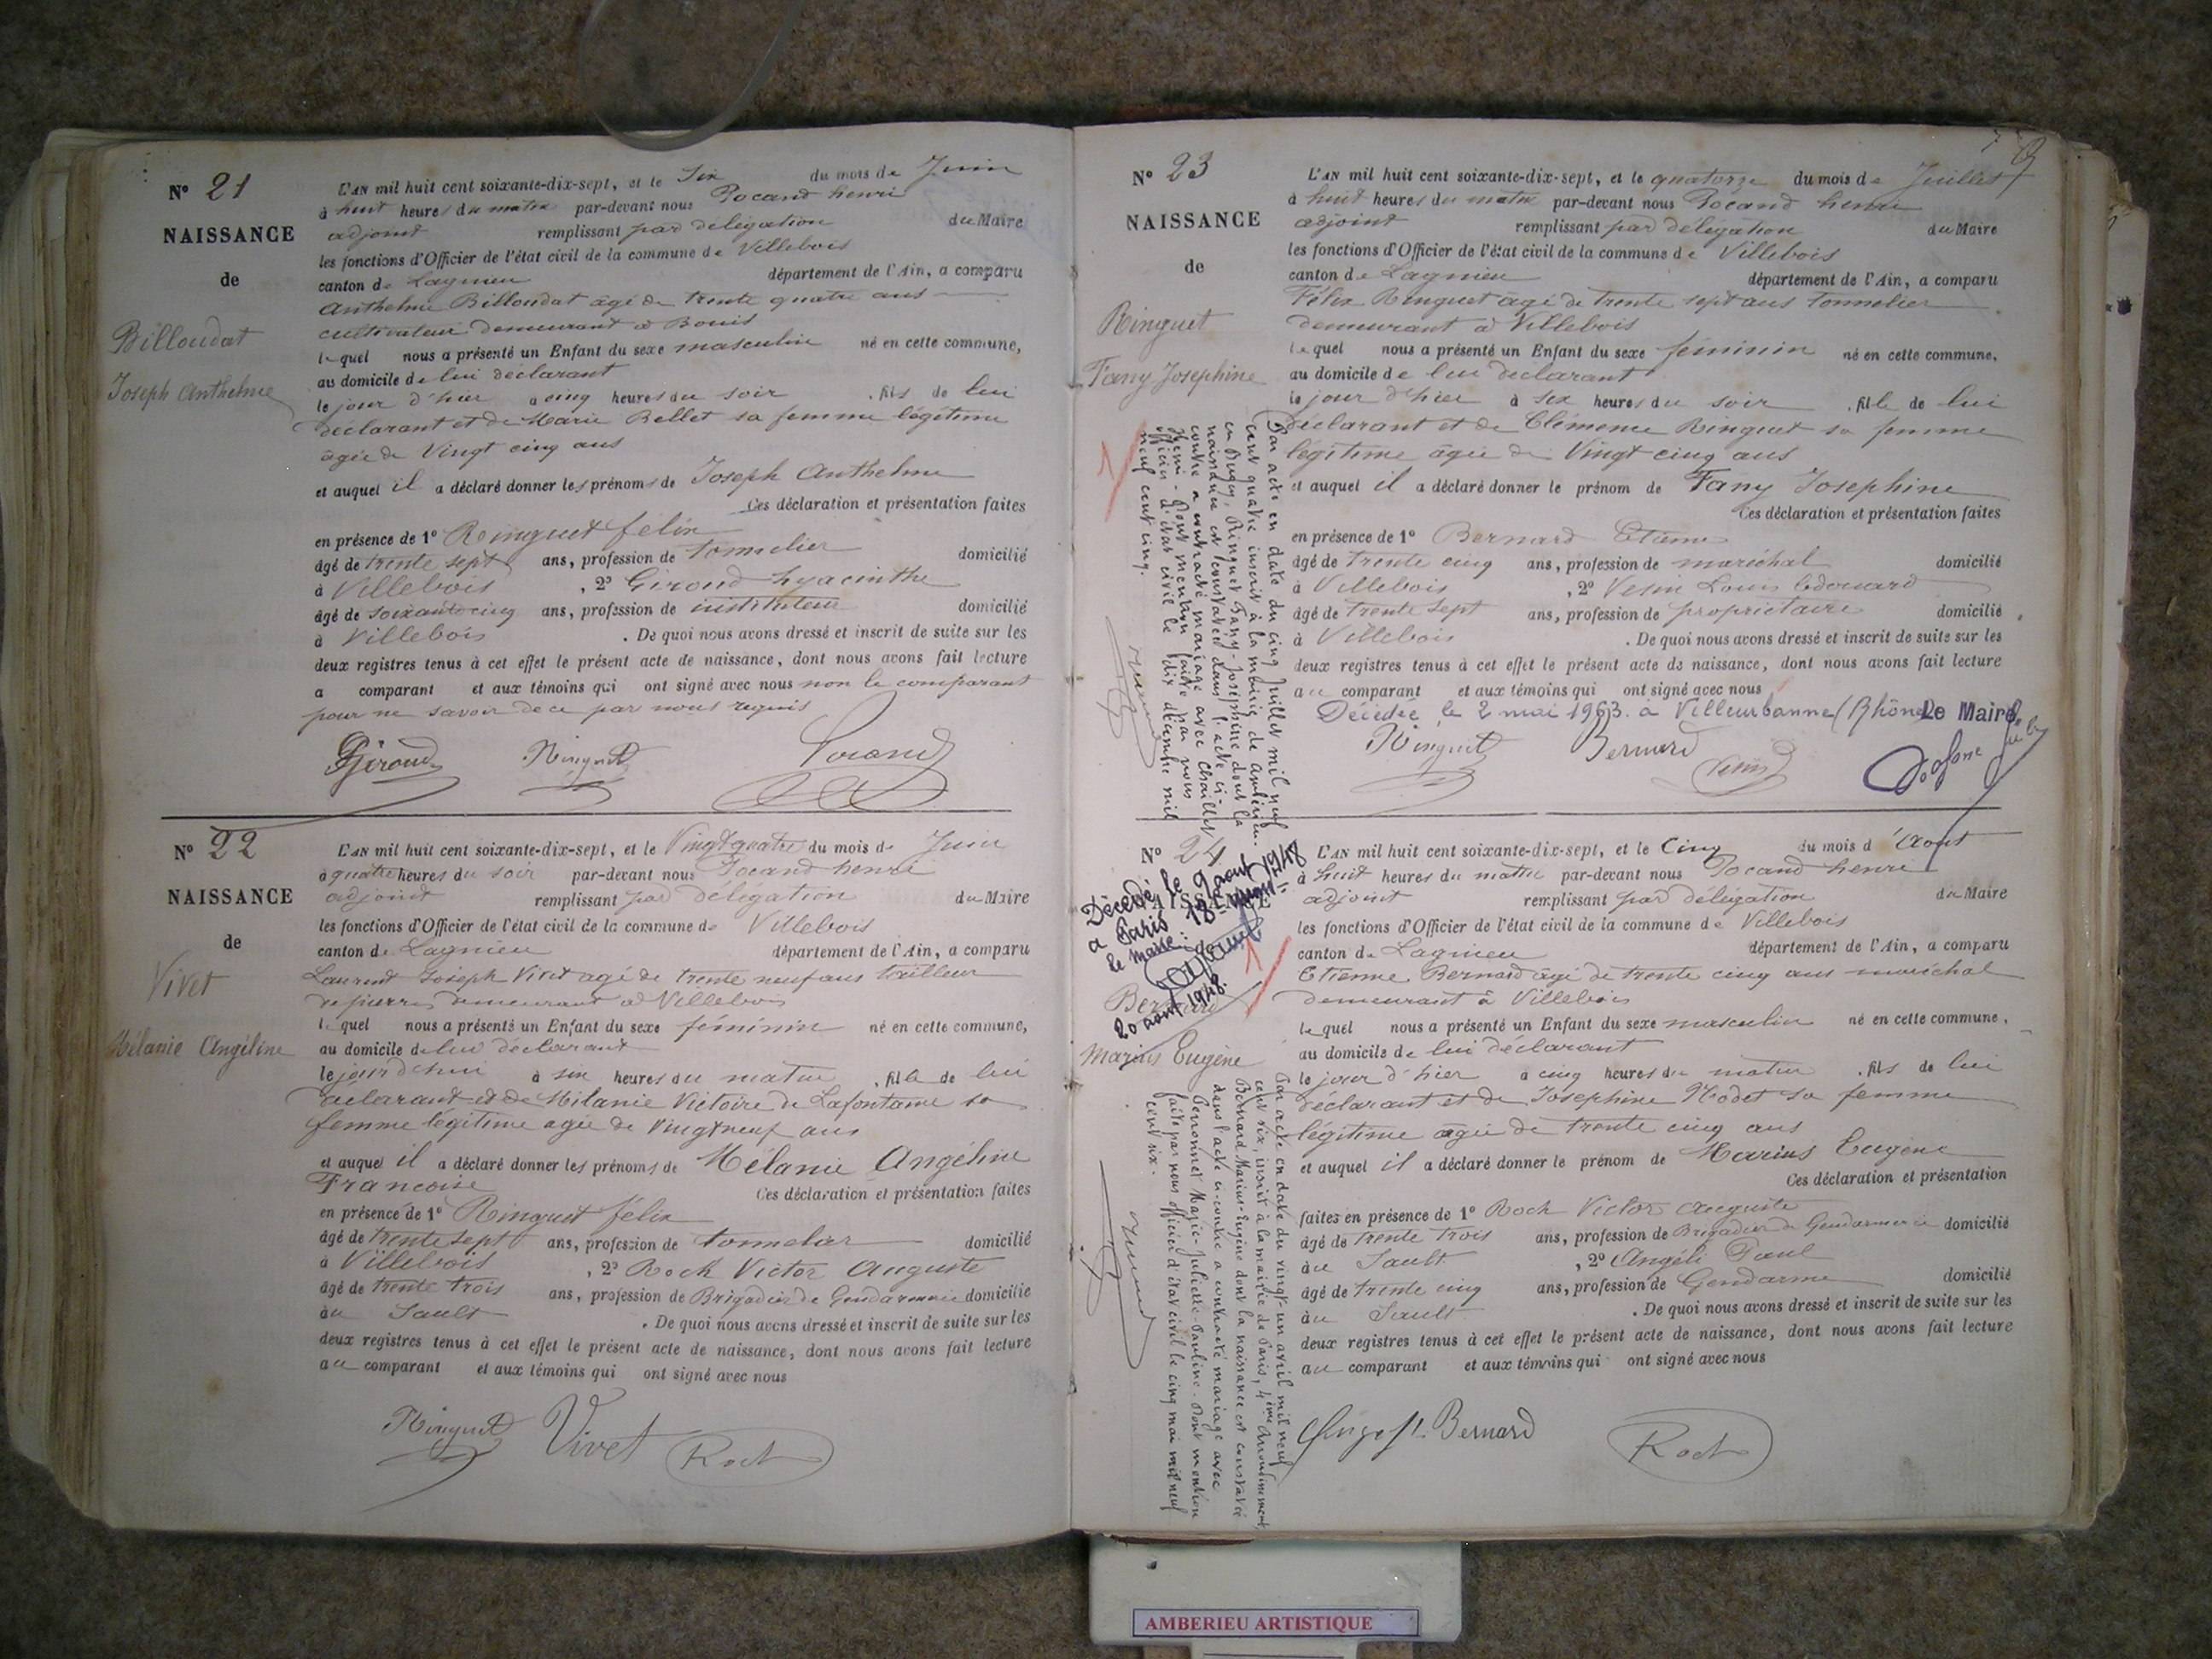 N° 21
NAISSANCE
de
Billoudat
Joseph Anthelme
L'AN mil huit cent soixante-dix-sept, et le Six du mois de Juin
à huit heures du matin par-devant nous Pocand henri
adjoint remplissant par délégation du Maire
les fonctions d'Officier de l'état civil de la commune de Villebois
canton de Lagnieu département de l'Ain, a comparu
Anthelme Billoudat âgé de trente quatre ans
cultivateur demeurant à Bouis
lequel nous a présenté un Enfant du sexe masculin né en cette commune,
au domicile de lui déclarant
le jour d'hier a cinq heures du soir , fils de lui
déclarant et de Marie Bellet sa femme légitime
âgée de Vingt cinq ans
et auquel il a déclaré donner les prénoms de Joseph Anthelme
Ces déclaration et présentation faites
en présence de 1° Ringuet félix
âgé de trente sept ans, profession de tonnelier domicilié
à Villebois , 2° Giroud hyacinthe
âgé de soixante cinq ans, profession de instituteur domicilié
à Villebois . De quoi nous avons dressé et inscrit de suite sur les
deux registres tenus à cet effet le présent acte de naissance, dont nous avons fait lecture
a comparant et aux témoins qui ont signé avec nous non le comparant
pour ne savoir de ce par nous requis
Giroud Ringuet Pocand
N° 22
NAISSANCE
de
Vivet
Mélanie Angéline
L'AN mil huit cent soixante-dix-sept, et le Vingt quatre du mois de Juin
à quatre heures du soir par-devant nous Pocand henri
adjoint remplissant par délégation du Maire
les fonctions d'Officier de l'état civil de la commune de Villebois
canton de Lagnieu département de l'Ain, a comparu
Laurent Joseph Vivet agé de trente neuf ans tailleur
de pierres demeurant à Villebois
lequel nous a présenté un Enfant du sexe féminin né en cette commune,
au domicile de lui déclarant
le jour d'hui à six heures du matin , fille de lui
déclarant et de Mélanie Victoire de Lafontaine sa
femme légitime agée de Vingt neuf ans
et auquel il a déclaré donner les prénoms de Mélanie Angéline
Francoise Ces déclaration et présentation faites
en présence de 1° Ringuet félix
âgé de trente sept ans, profession de tonnelier domicilié
à Villebois , 2° Roch Victor Auguste
âgé de trente trois ans, profession de Brigadier de Gendarmerie domicilié
au Sault . De quoi nous avons dressé et inscrit de suite sur les
deux registres tenus à cet effet le présent acte de naissance, dont nous avons fait lecture
au comparant et aux témoins qui ont signé avec nous
Ringuet Vivet Roch
N° 23
NAISSANCE
de
Ringuet
Fany Josephine
L'AN mil huit cent soixante-dix-sept, et le quatorze du mois de Juillet
à huit heures du matin par-devant nous Pocand henri
adjoint remplissant par délégation du Maire
les fonctions d'Officier de l'état civil de la commune de Villebois
canton de Lagnieu département de l'Ain, a comparu
Félix Ringuet âgé de trente sept ans tonnelier
demeurant à Villebois
lequel nous a présenté un Enfant du sexe féminin né en cette commune,
au domicile de lui déclarant
le jour d'hier à six heures du soir , fille de lui
déclarant et de Clémence Ringuet sa femme
légitime âgée de Vingt cinq ans
et auquel il a déclaré donner le prénom de Fany Josephine
Ces déclaration et présentation faites
en présence de 1° Bernard Etienne
âgé de trente cinq ans, profession de maréchal domicilié
à Villebois , 2° Vesin Louis Edouard
âgé de trente sept ans, profession de propriétaire domicilié
à Villebois . De quoi nous avons dressé et inscrit de suite sur les
deux registres tenus à cet effet le présent acte de naissance, dont nous avons fait lecture
au comparant et aux témoins qui ont signé avec nous
Décédée le 2 mai 1963 à Villeurbanne (Rhône) Le Maire
Ringuet Bernard Vesin
Par acte en date du cinq Juillet mil neuf
cent quatre inscrit à la mairie de Ambérieu
en Bugey, Ringuet Fany-Joséphine dont la
naissance est constatée dans l'acte ci-
contre a contracté mariage avec Chaillet
Rémi. Dont mention faite par nous
officier d'état civil le dix décembre mil
neuf cent cinq.
N° 24
NAISSANCE
Décédé le 9 aout 1948
a Paris 18e
le Maire:
20 aout 1948.
Bernard
Marius Eugène
L'AN mil huit cent soixante-dix-sept, et le Cinq du mois d'Aout
à huit heures du matin par-devant nous Pocand henri
adjoint remplissant par délégation du Maire
les fonctions d'Officier de l'état civil de la commune de Villebois
canton de Lagnieu département de l'Ain, a comparu
Etienne Bernard âgé de trente cinq ans maréchal
demeurant à Villebois
lequel nous a présenté un Enfant du sexe masculin né en cette commune,
au domicile de lui déclarant
le jour d'hier a cinq heures du matin , fils de lui
déclarant et de Josephine Nodet sa femme
légitime agée de trente cinq ans
et auquel il a déclaré donner le prénom de Marius Eugène
Ces déclaration et présentation
faites en présence de 1° Roch Victor Auguste
âgé de trente trois ans, profession de Brigadier de Gendarmerie domicilié
au Sault , 2° Angéli Paul
âgé de trente cinq ans, profession de Gendarme domicilié
au Sault . De quoi nous avons dressé et inscrit de suite sur les
deux registres tenus à cet effet le présent acte de naissance, dont nous avons fait lecture
au comparant et aux témoins qui ont signé avec nous
Bernard Roch
Par acte en date du vingt-un avril mil neuf
cent six, inscrit à la mairie de Paris, 4ème arrondissement,
Bernard Marius-Eugène dont la naissance est constatée
dans l'acte ci-contre a contracté mariage avec
Peronnet Marie-Juliette-Pauline. Dont mention
faite par nous officier d'état civil le cinq mai mil neuf
cent six.
AMBERIEU ARTISTIQUE